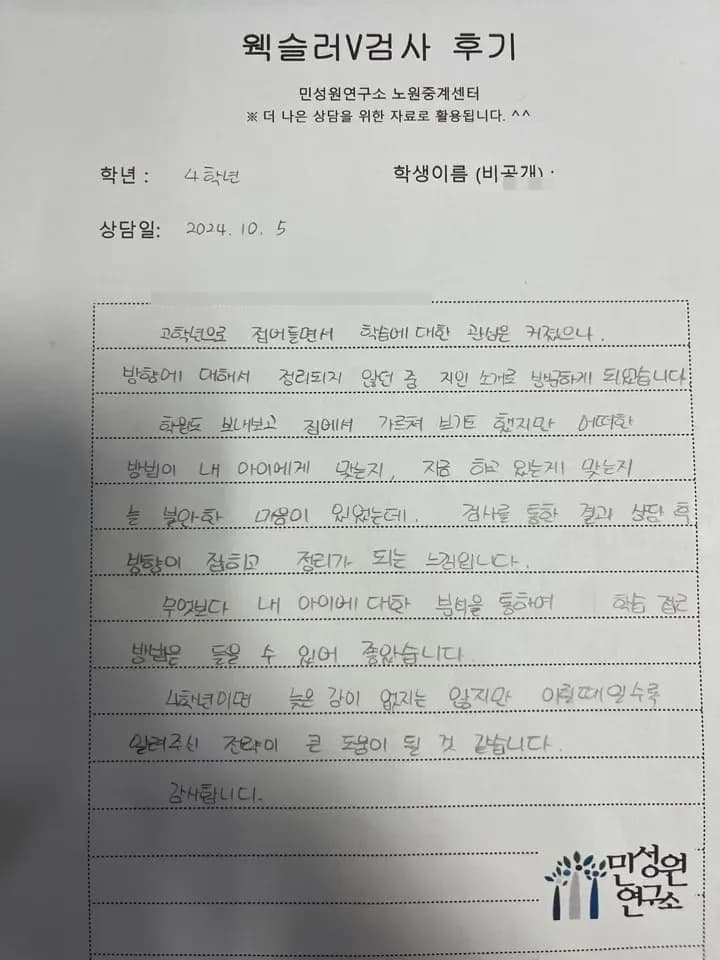 웩슬러V검사 후기
민성원연구소 노원중계센터
※ 더 나은 상담을 위한 자료로 활용됩니다. ^^
학년 : 4학년 학생이름 (비공개) :
상담일: 2024. 10. 5
고학년으로 접어들면서 학습에 대한 관심은 커졌으나,
방향에 대해서 정리되지 않던 중 지인 소개로 방문하게 되었습니다
학원도 보내보고 집에서 가르쳐 보기도 했지만 어떠한
방법이 내 아이에게 맞는지, 지금 하고 있는게 맞는지
늘 불안한 마음이 있었는데, 검사를 통한 결과 상담 후
방향이 잡히고 정리가 되는 느낌입니다.
무엇보다 내 아이에 대한 분석을 통하여 학습 접근
방법을 들을 수 있어 좋았습니다.
4학년이면 늦은 감이 없지는 않지만 이럴때일수록
알려주신 전략이 큰 도움이 될 것 같습니다.
감사합니다.
민성원
연구소